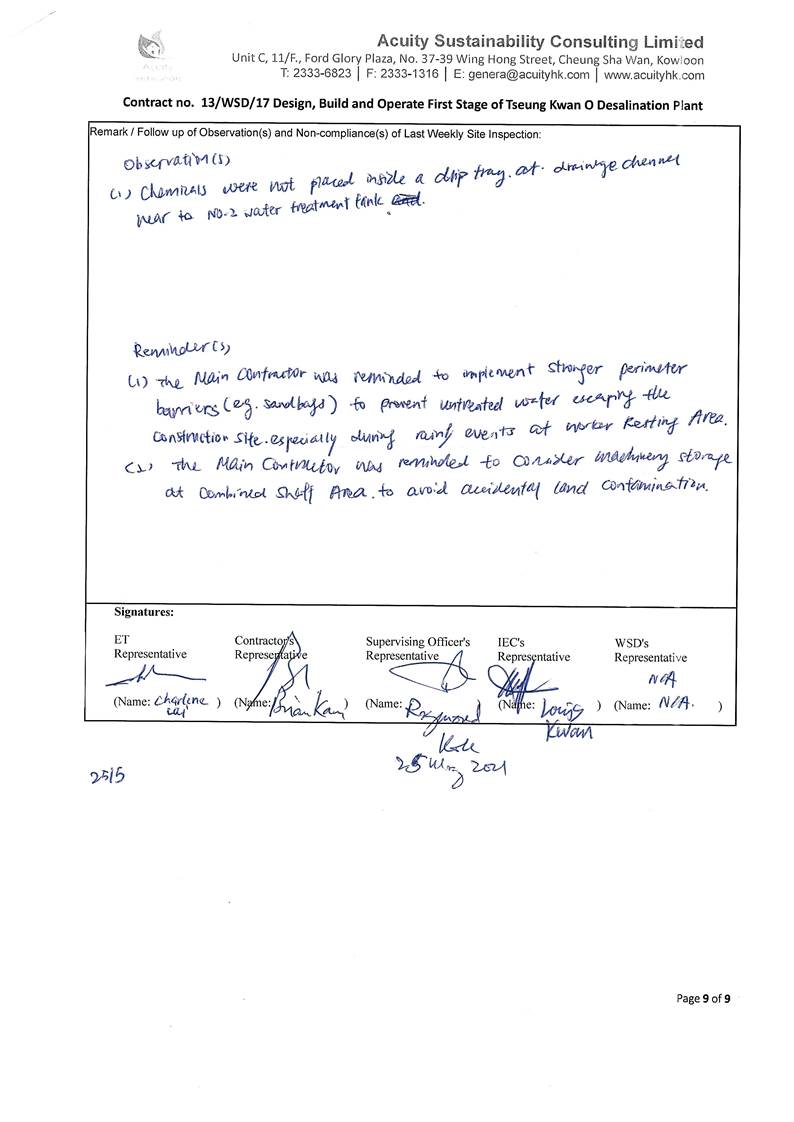 Acuity Sustainability Consulting Limited
Unit C, 11/F., Ford Glory Plaza, No. 37-39 Wing Hong Street, Cheung Sha Wan, Kowloon
T: 2333-6823 | F: 2333-1316 | E: genera@acuityhk.com | www.acuityhk.com
Acuity
Contract no. 13/WSD/17 Design, Build and Operate First Stage of Tseung Kwan O Desalination Plant
Remark / Follow up of Observation(s) and Non-compliance(s) of Last Weekly Site Inspection:
Observation(s)
(1) Chemicals were not placed inside a drip tray. at. drainage channel
near to NO.2 water treatment tank.
Reminder(s)
(1) The Main Contractor was reminded to implement stronger perimeter
barriers (eg. sandbags) to prevent untreated water escaping the
construction site. especially during rainy events at worker Resting Area.
(2) The Main Contractor was reminded to consider machinery storage
at Combined Shaft Area. to avoid accidental land contamination.
Signatures:
ET Representative
Contractor's Representative
Supervising Officer's Representative
IEC's Representative
WSD's Representative
N/A
(Name: Charlene )
(Name: Brian Kam )
(Name: Raymond
(Name: Louis Kwan )
(Name: N/A. )
25 May 2021
25/5
Page 9 of 9